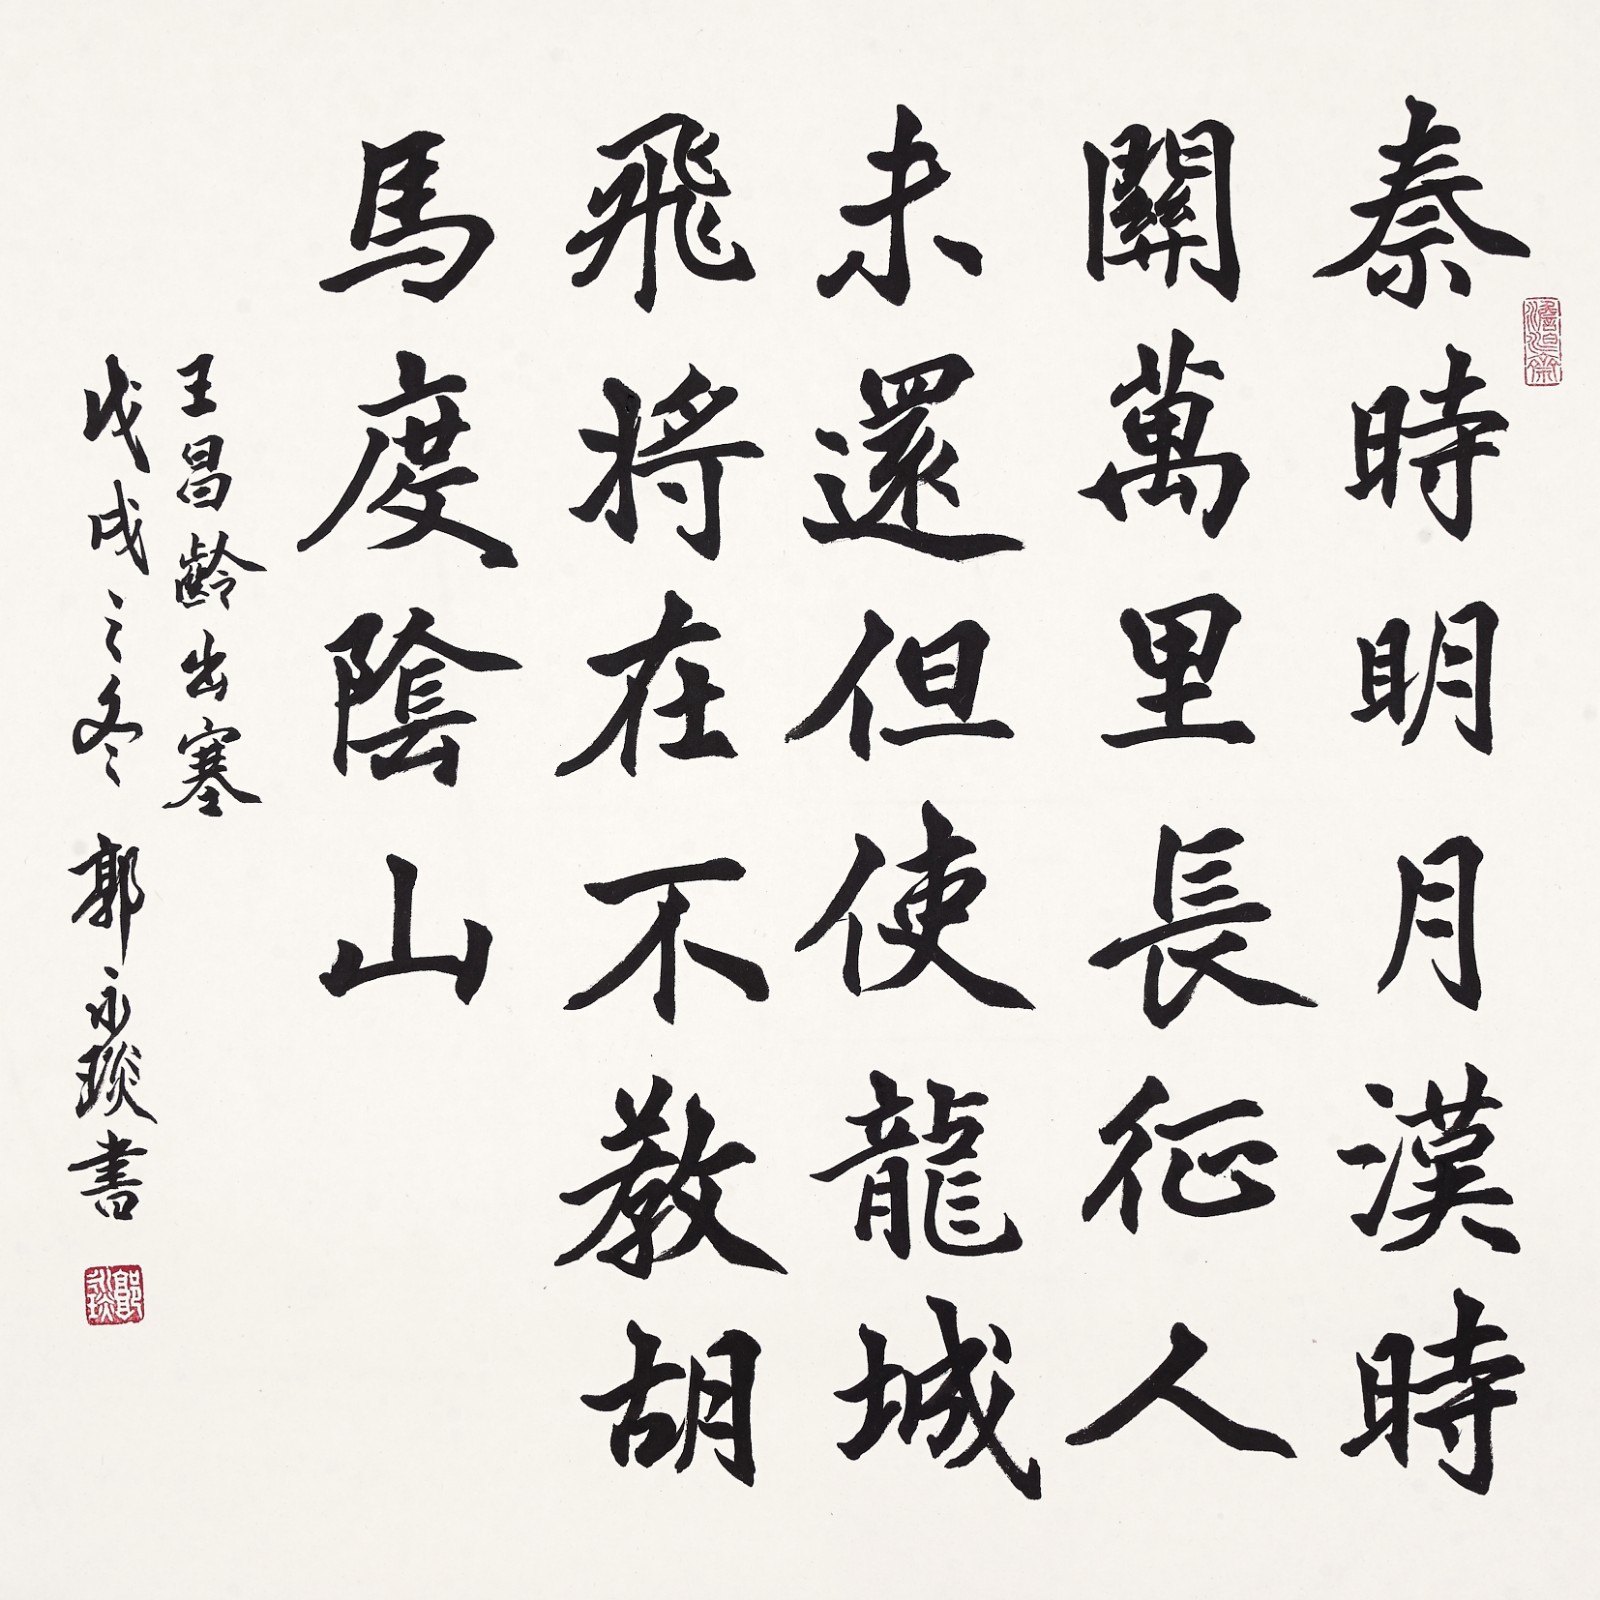 秦時明月漢時
關萬里長征人
未還但使龍城
飛將在不教胡
馬度陰山
王昌齡出塞
戊戌之冬 郭永琰書
郭永琰